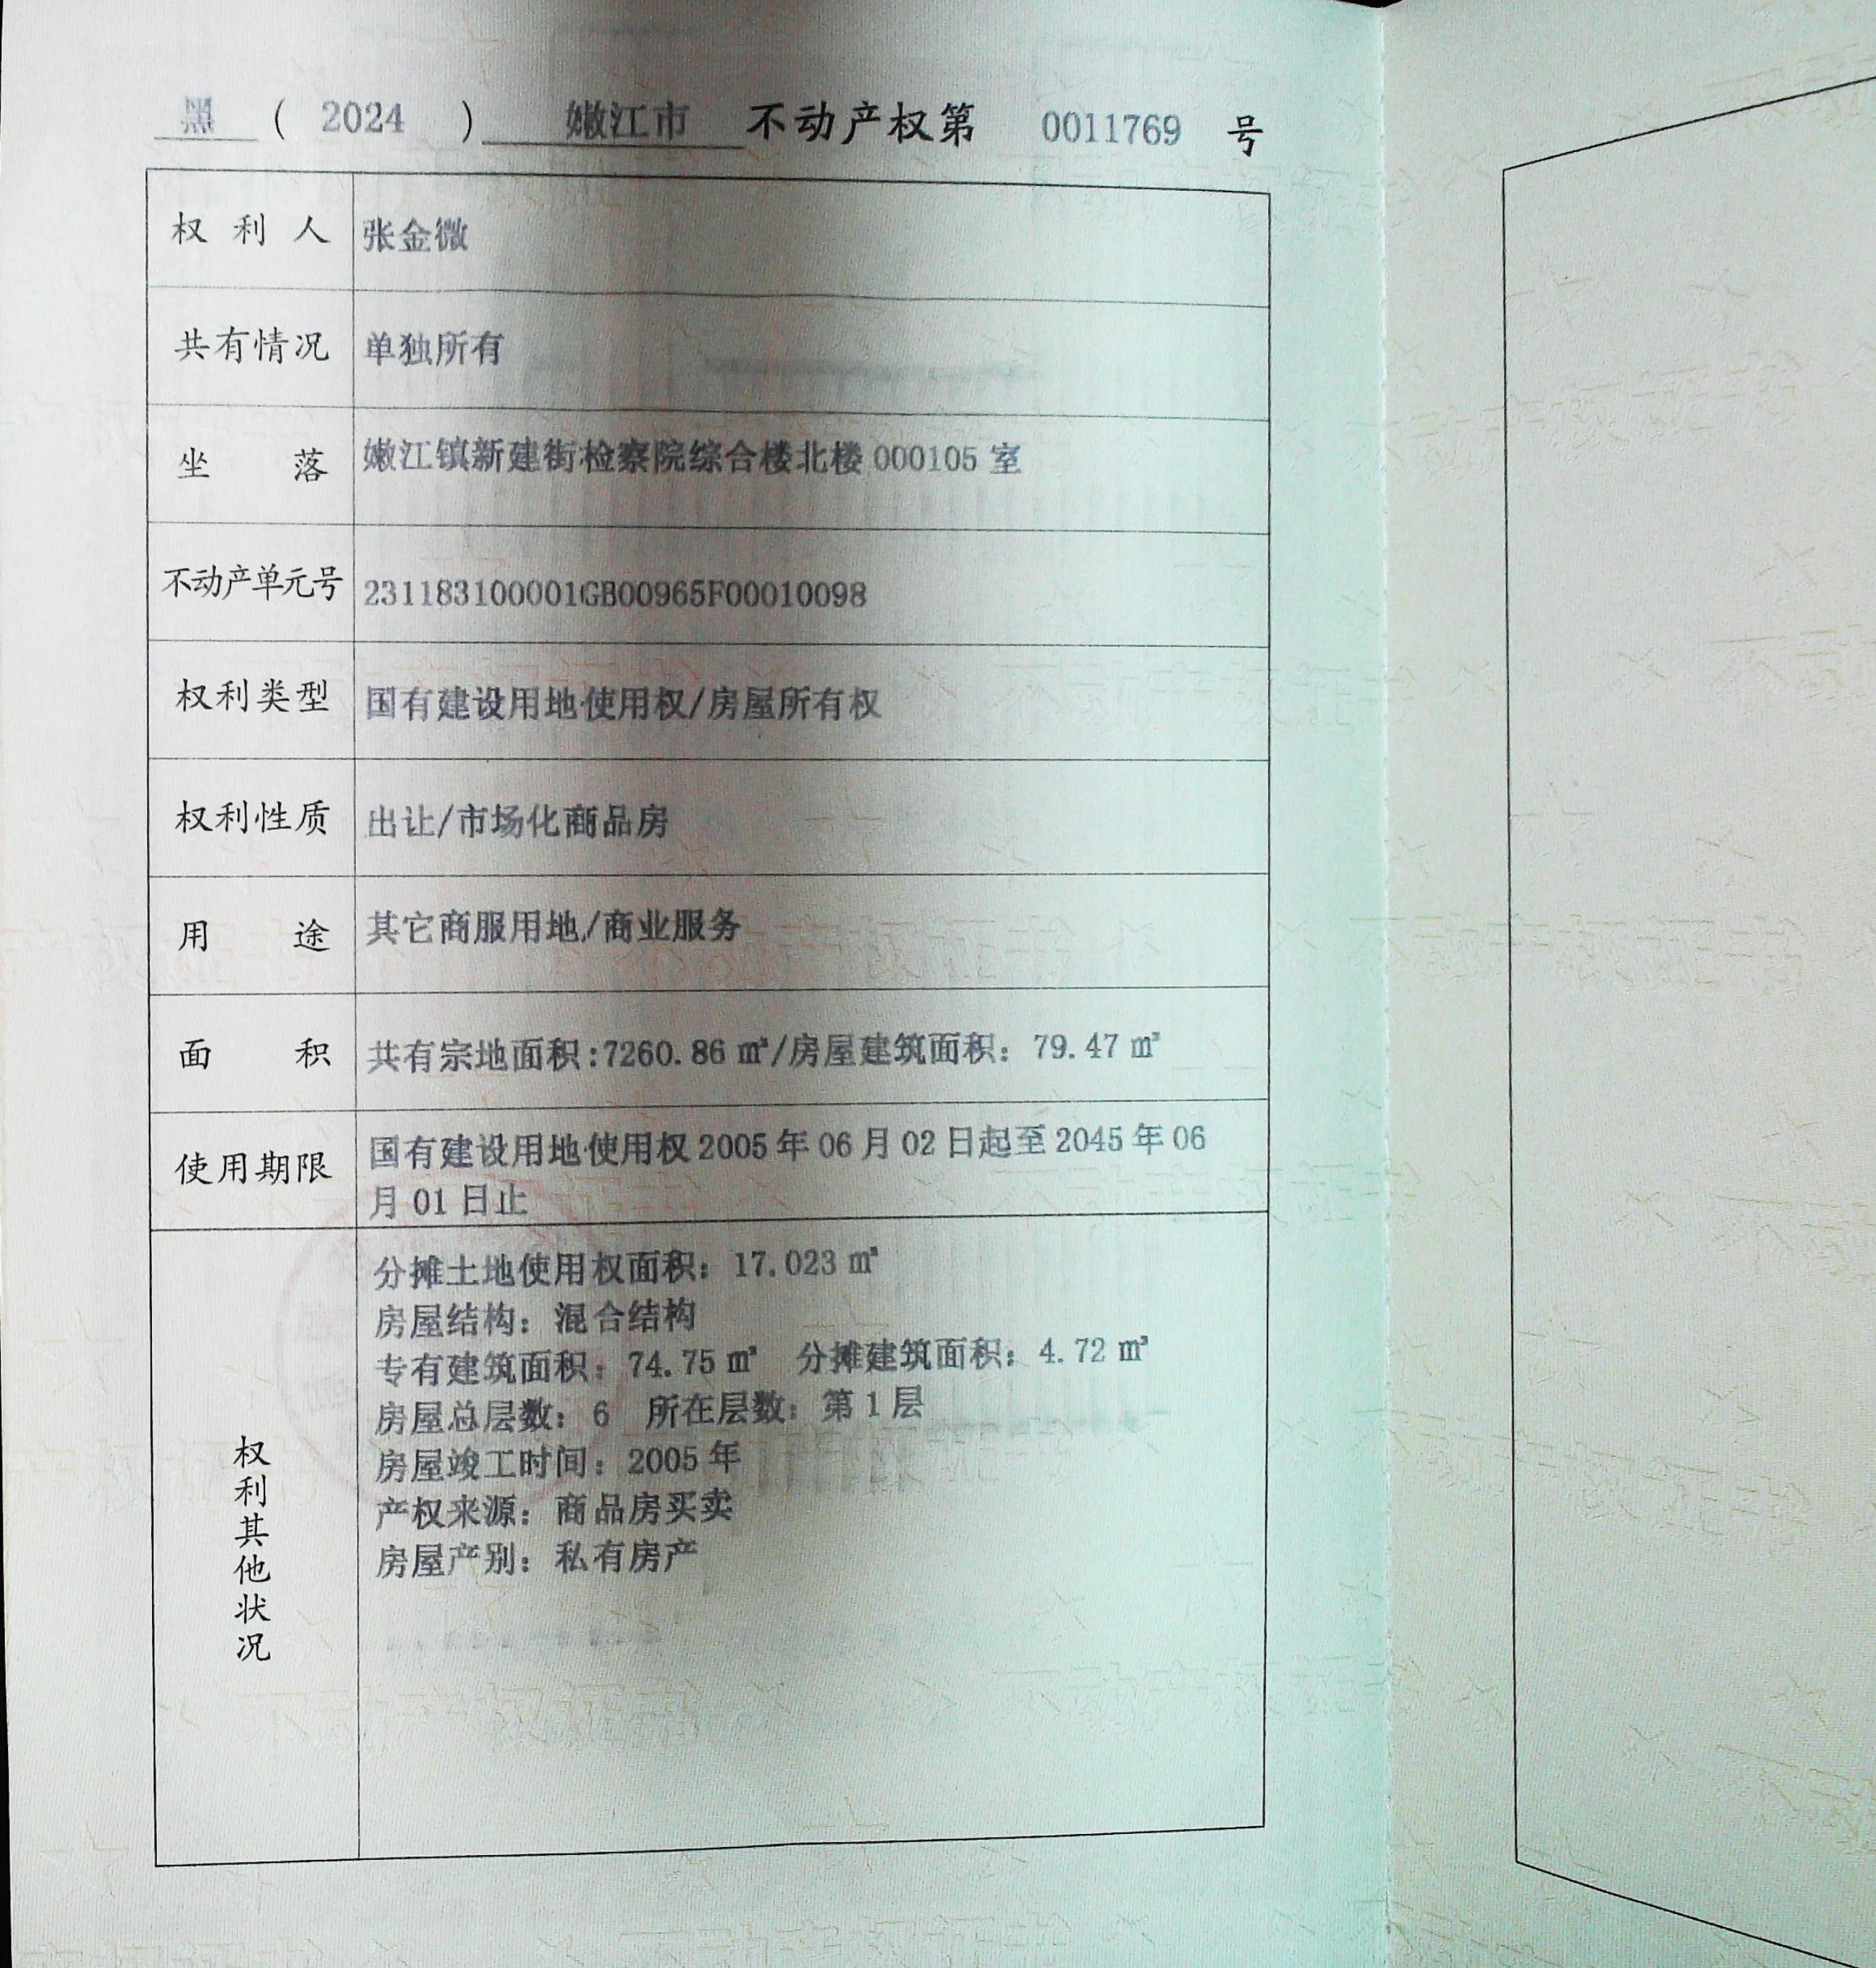 黑 ( 2024 ) 嫩江市 不动产权第 0011769 号
权利人 张金微
共有情况 单独所有
坐落 嫩江镇新建街检察院综合楼北楼 000105 室
不动产单元号 231183100001GB00965F00010098
权利类型 国有建设用地使用权/房屋所有权
权利性质 出让/市场化商品房
用途 其它商服用地/商业服务
面积 共有宗地面积:7260.86 ㎡/房屋建筑面积：79.47 ㎡
使用期限 国有建设用地使用权 2005 年 06 月 02 日起至 2045 年 06
月 01 日止
权利其他状况
分摊土地使用权面积：17.023 ㎡
房屋结构：混合结构
专有建筑面积：74.75 ㎡ 分摊建筑面积：4.72 ㎡
房屋总层数：6 所在层数：第 1 层
房屋竣工时间：2005 年
产权来源：商品房买卖
房屋产别：私有房产